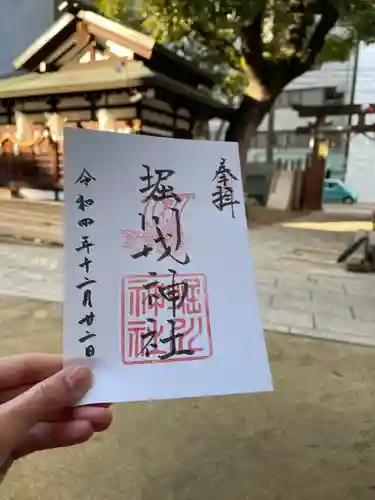 奉拝
堀川戎神社
堀川神社
令和四年十二月廿二日